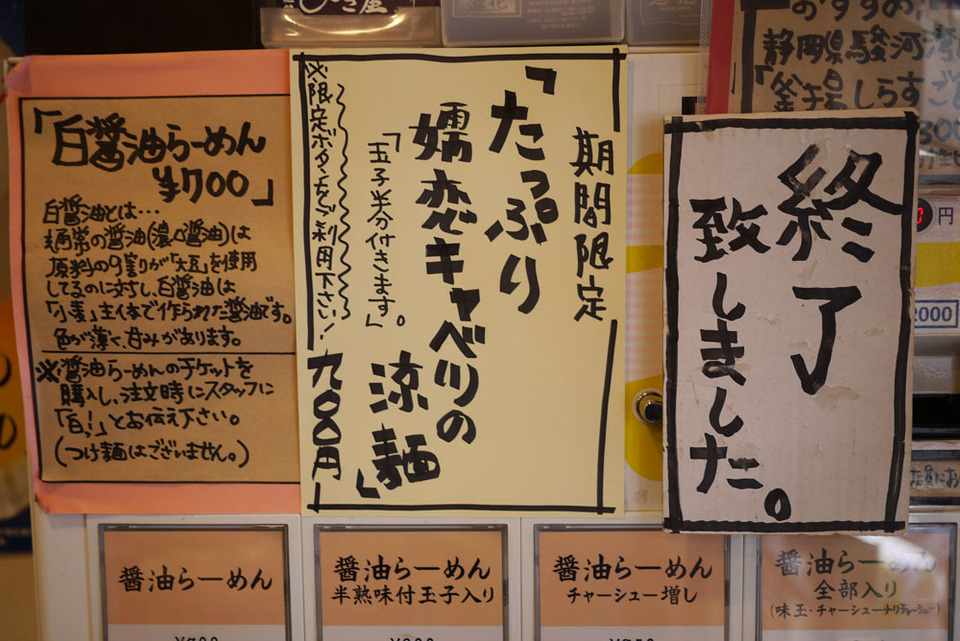 「白醤油らーめん
¥700」
白醤油とは…
通常の醤油(濃口醤油)は
原料の9割が「大豆」を使用
してるのに対し、白醤油は
「小麦」主体で作られた醤油です。
色が薄く、甘みがあります。
※醤油らーめんのチケットを
購入し、注文時にスタッフに
「白!」とお伝え下さい。
(つけ麺はございません。)
期間限定
「たっぷり
嬬恋キャベツの
涼麺」
「玉子半分付きます。」
※限定ボタンをご利用下さい!
九〇〇円
終了
致しました。
おすすめ
静岡県駿河湾
「釜揚しらすご
円
2000
醤油らーめん
醤油らーめん
半熟味付玉子入り
醤油らーめん
チャーシュー増し
醤油らーめん
全部入り